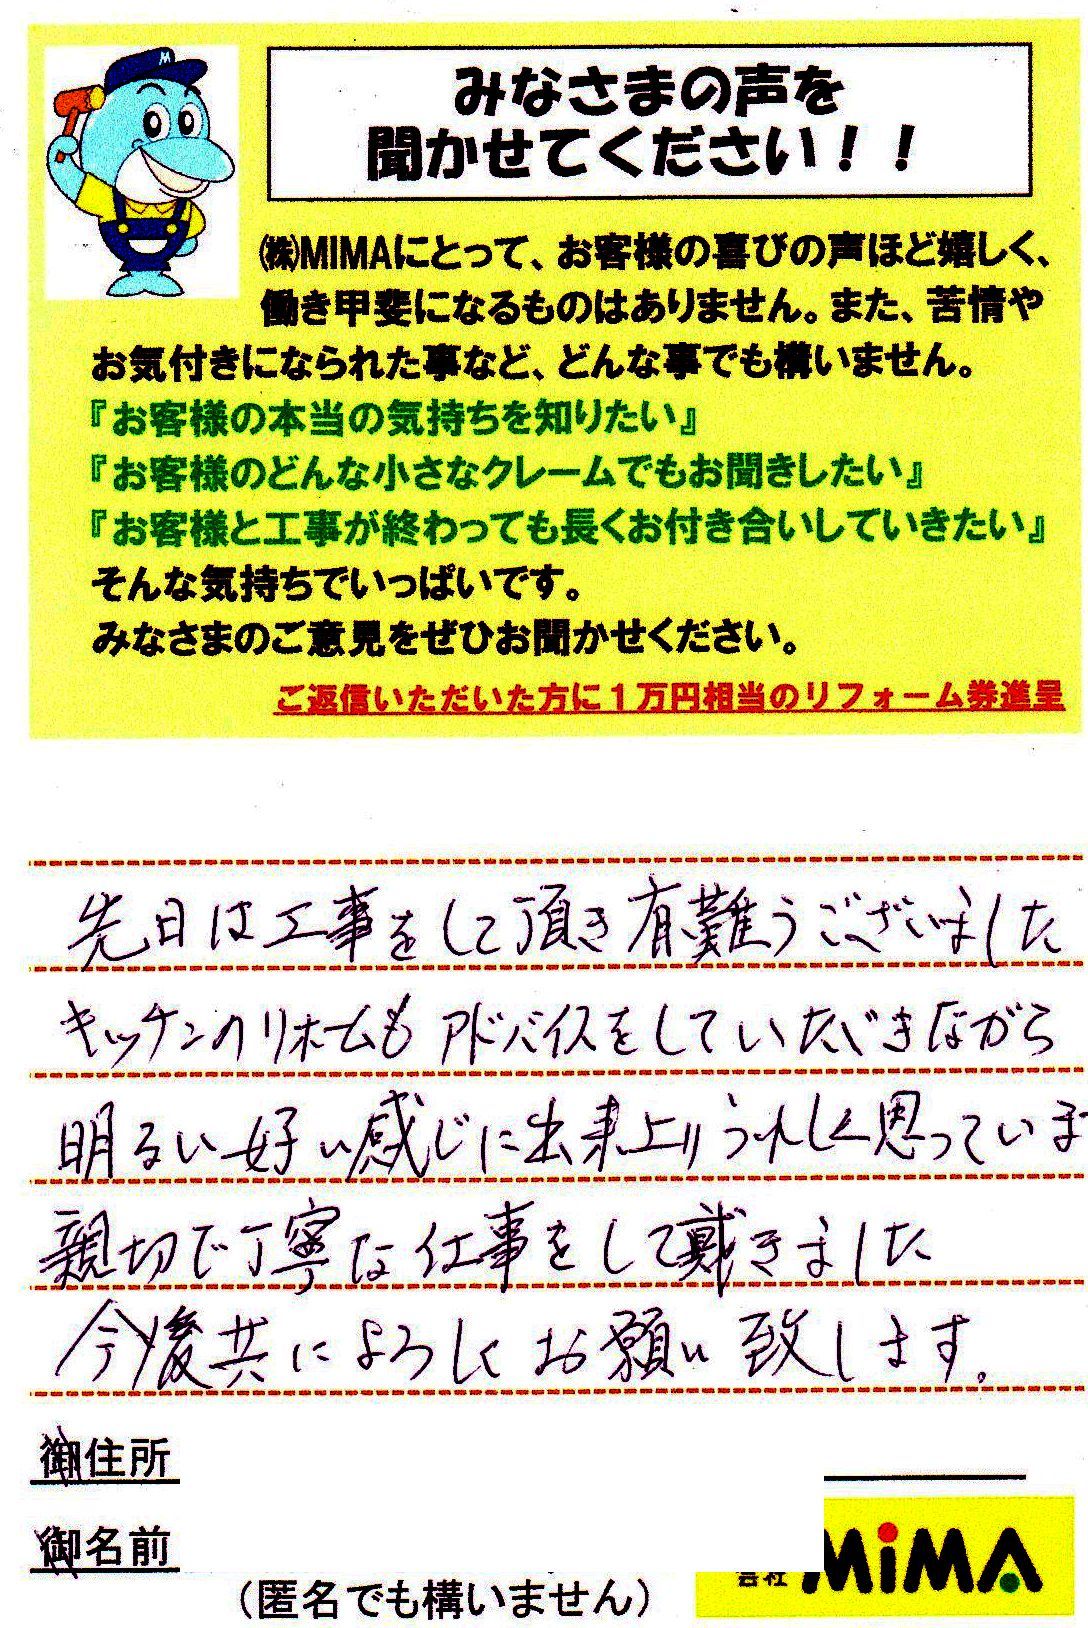 M
みなさまの声を
聞かせてください！！
㈱MIMAにとって、お客様の喜びの声ほど嬉しく、
働き甲斐になるものはありません。また、苦情や
お気付きになられた事など、どんな事でも構いません。
『お客様の本当の気持ちを知りたい』
『お客様のどんな小さなクレームでもお聞きしたい』
『お客様と工事が終わっても長くお付き合いしていきたい』
そんな気持ちでいっぱいです。
みなさまのご意見をぜひお聞かせください。
ご返信いただいた方に１万円相当のリフォーム券進呈
先日は工事をして頂き有難うございました
キッチンのリホームもアドバイスをしていただきながら
明るい好い感じに出来上りうれしく思っていま
親切で丁寧な仕事をして戴きました
今後共によろしくお願い致します。
御住所
御名前
（匿名でも構いません）
会社 MiMA